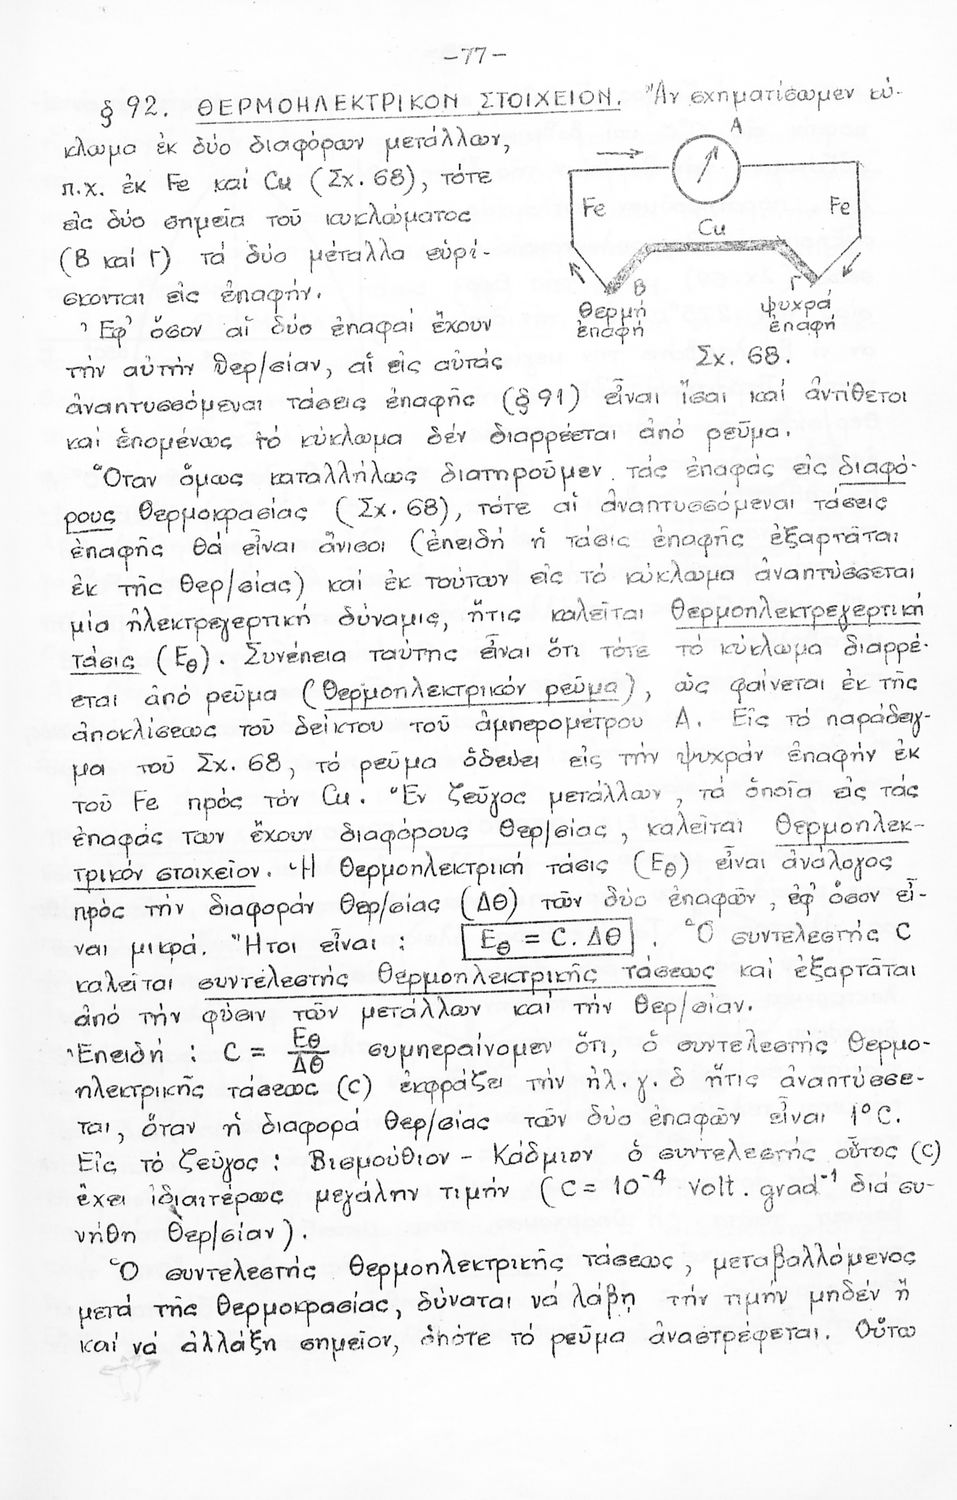 -77-
§ 92. ΘΕΡΜΟΗΛΕΚΤΡΙΚΟΝ ΣΤΟΙΧΕΙΟΝ. Ἄν σχηματίσωμεν κύ-
κλωμα ἐκ δύο διαφόρων μετάλλων,
π.χ. ἐκ Fe καί Cu (Σχ. 68), τότε
εἰς δύο σημεῖα τοῦ κυκλώματος
(Β καί Γ) τά δύο μέταλλα εὑρί-
σκονται εἰς ἐπαφήν.
A
Fe
Fe
Cu
B
Γ
Θερμή
ἐπαφή
ψυχρά
ἐπαφή
Σχ. 68.
Ἐφ' ὅσον αἱ δύο ἐπαφαί ἔχουν
τήν αὐτήν θερ/σίαν, αἱ εἰς αὐτάς
ἀναπτυσσόμεναι τάσεις ἐπαφῆς (§ 91) εἶναι ἴσαι καί ἀντίθετοι
καί ἑπομένως τό κύκλωμα δέν διαρρέεται ἀπό ρεῦμα.
Ὅταν ὅμως καταλλήλως διατηροῦμεν τάς ἐπαφάς εἰς διαφό-
ρους θερμοκρασίας (Σχ. 68), τότε αἱ ἀναπτυσσόμεναι τάσεις
ἐπαφῆς θά εἶναι ἄνισοι (ἐπειδή ἡ τάσις ἐπαφῆς ἐξαρτᾶται
ἐκ τῆς θερ/σίας) καί ἐκ τούτων εἰς τό κύκλωμα ἀναπτύσσεται
μία ἠλεκτρεγερτική δύναμις, ἥτις καλεῖται θερμοηλεκτρεγερτική
τάσις (Eθ). Συνέπεια ταύτης εἶναι ὅτι τότε τό κύκλωμα διαρρέ-
εται ἀπό ρεῦμα (θερμοηλεκτρικόν ρεῦμα), ὡς φαίνεται ἐκ τῆς
ἀποκλίσεως τοῦ δείκτου τοῦ ἀμπερομέτρου A. Εἰς τό παράδειγ-
μα τοῦ Σχ. 68, τό ρεῦμα ὁδεύει εἰς τήν ψυχράν ἐπαφήν ἐκ
τοῦ Fe πρός τόν Cu. Ἕν ζεῦγος μετάλλων, τά ὁποῖα εἰς τάς
ἐπαφάς των ἔχουν διαφόρους θερ/σίας, καλεῖται θερμοηλεκ-
τρικόν στοιχεῖον. Ἡ θερμοηλεκτρική τάσις (Eθ) εἶναι ἀνάλογος
πρός τήν διαφοράν θερ/σίας (Δθ) τῶν δύο ἐπαφῶν, ἐφ' ὅσον εἶ-
ναι μικρά. Ἤτοι εἶναι: Eθ = C. Δθ. Ὁ συντελεστής C
καλεῖται συντελεστής θερμοηλεκτρικῆς τάσεως καί ἐξαρτᾶται
ἀπό τήν φύσιν τῶν μετάλλων καί τήν θερ/σίαν.
Ἐπειδή: C = Eθ/Δθ συμπεραίνομεν ὅτι, ὁ συντελεστής θερμο-
ηλεκτρικῆς τάσεως (c) ἐκφράζει τήν ἠλ. γ. δ ἥτις ἀναπτύσσε-
ται, ὅταν ἡ διαφορά θερ/σίας τῶν δύο ἐπαφῶν εἶναι 1°C.
Εἰς τό ζεῦγος: Βισμούθιον - Κάδμιον ὁ συντελεστής οὗτος (c)
ἔχει ἰδιαιτέρως μεγάλην τιμήν (C = 10⁻⁴ volt. grad⁻¹ διά συ-
νήθη θερ/σίαν).
Ὁ συντελεστής θερμοηλεκτρικῆς τάσεως, μεταβαλλόμενος
μετά τῆς θερμοκρασίας, δύναται νά λάβῃ τήν τιμήν μηδέν ἤ
καί νά ἀλλάξῃ σημεῖον, ὁπότε τό ρεῦμα ἀναστρέφεται. Οὕτω